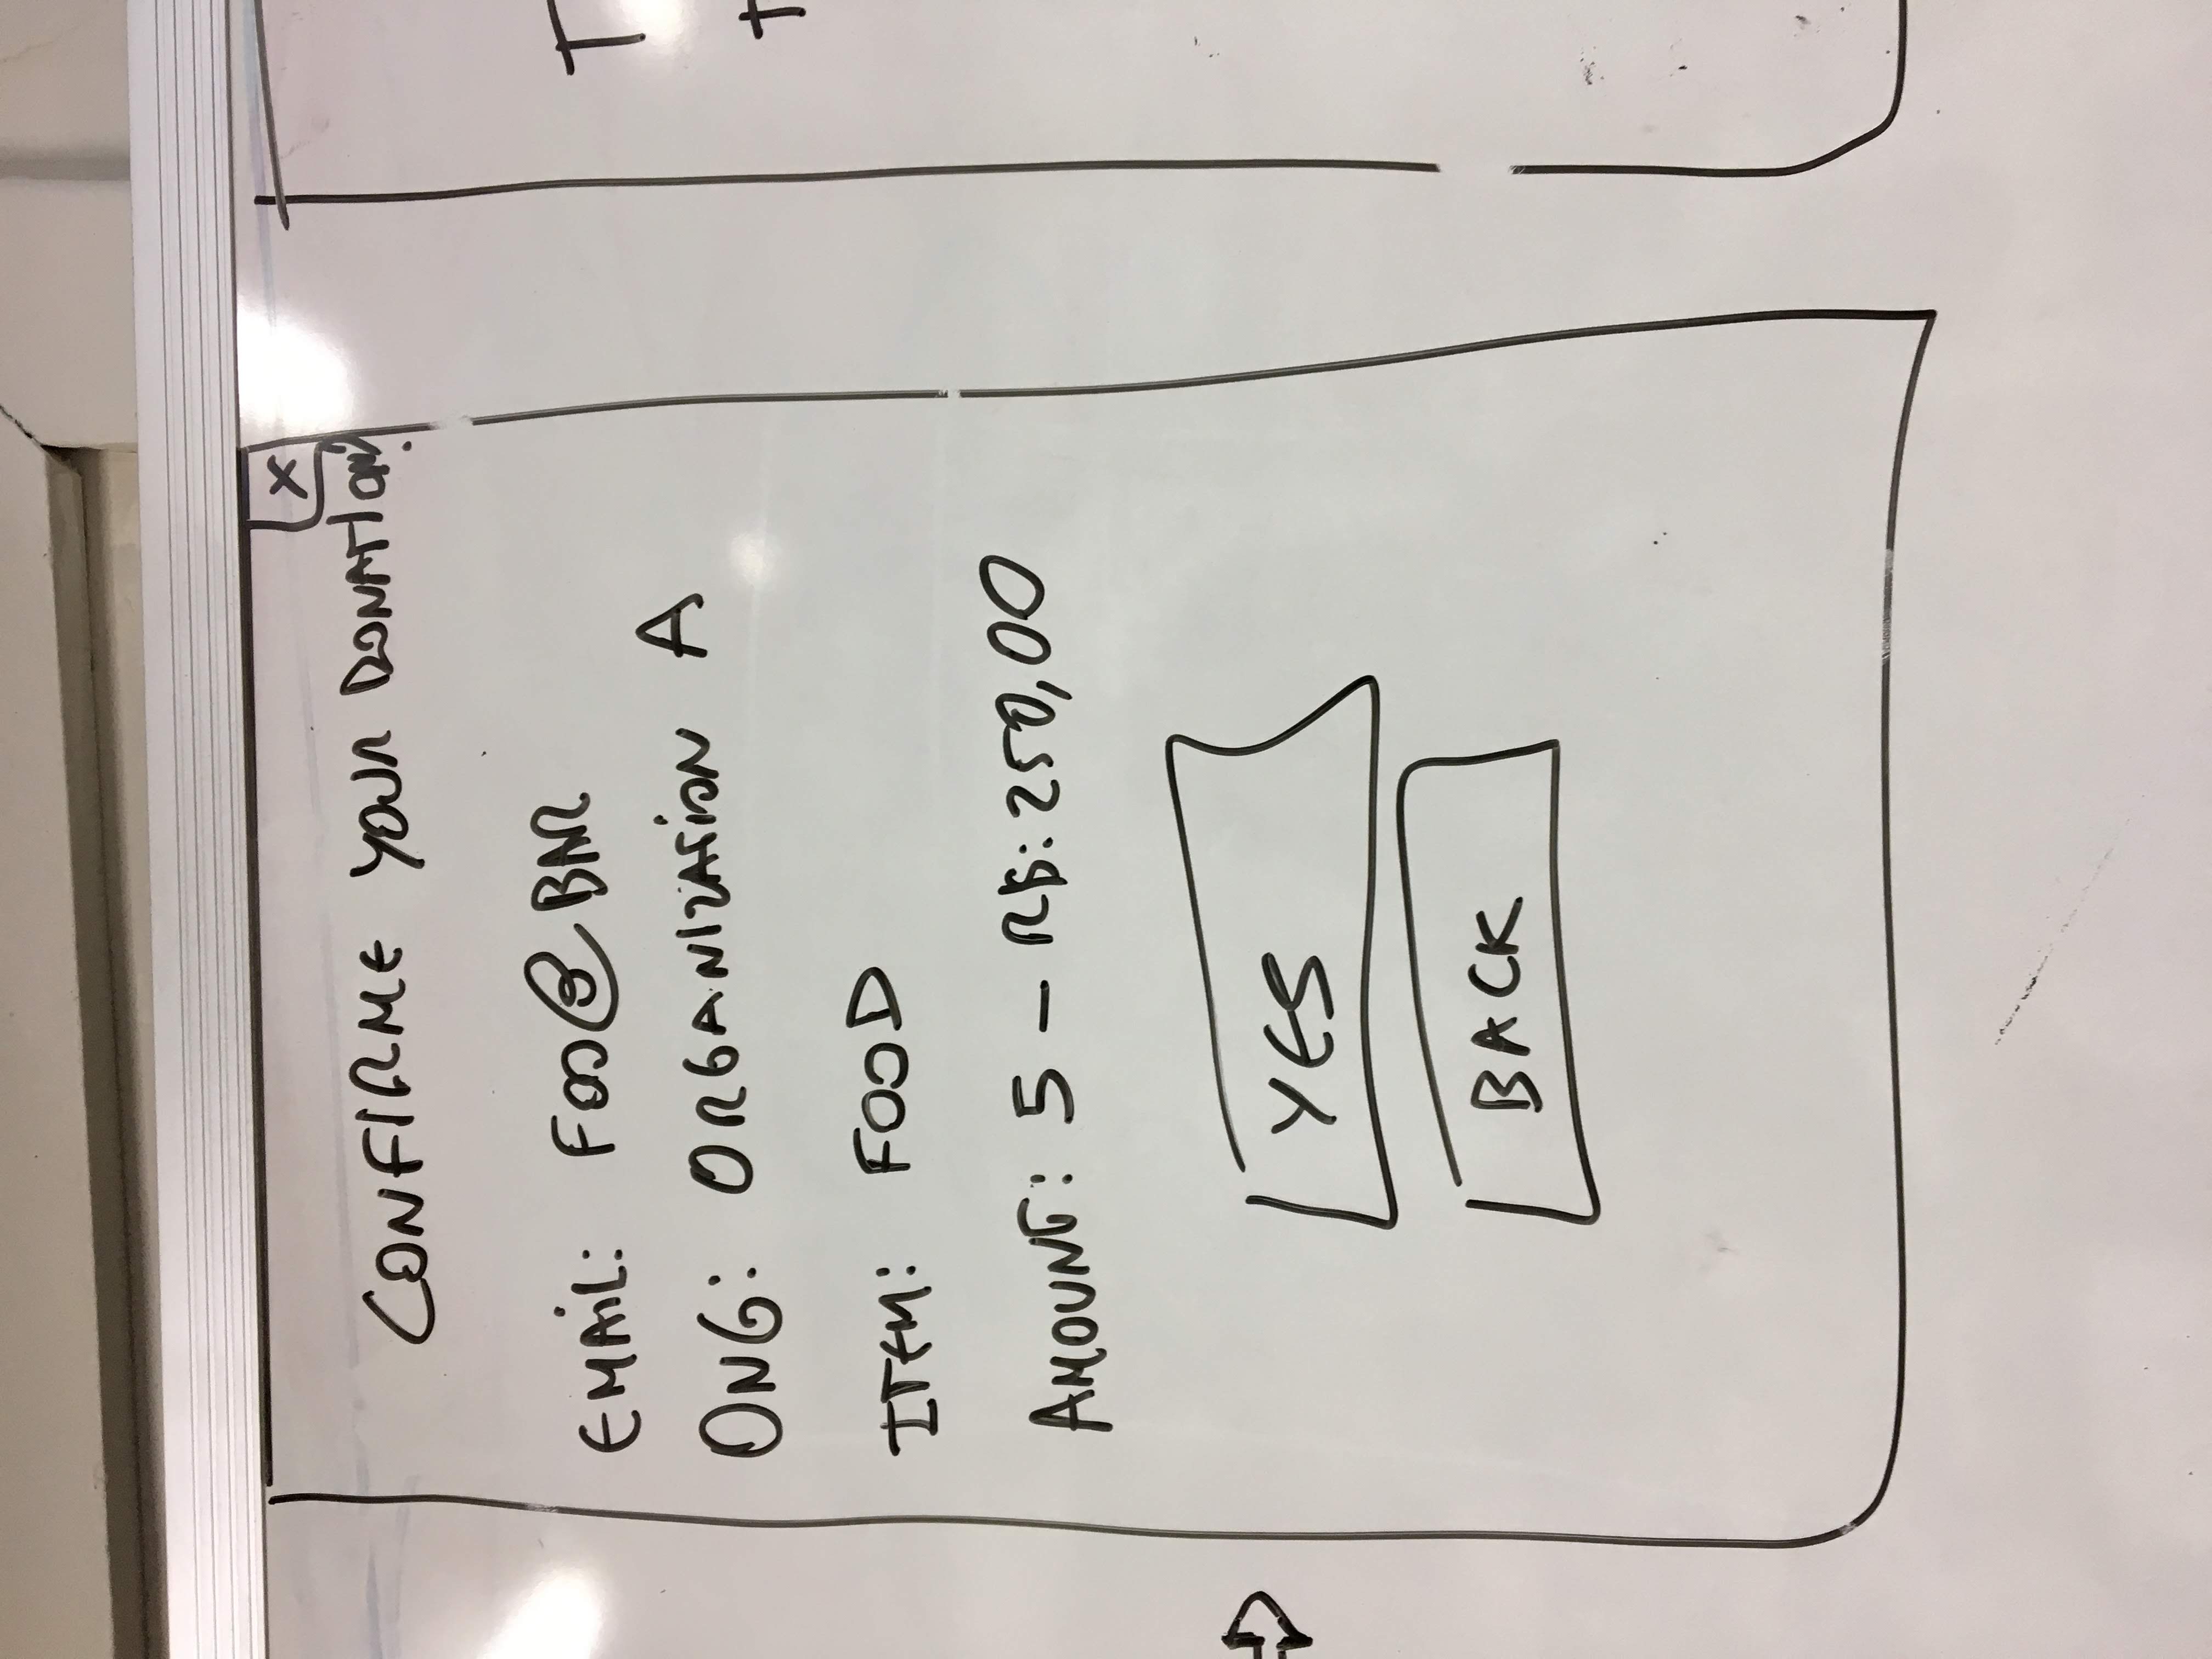 X
CONFIRME YOUR DONATION?
EMAIL: FOO@BAR
ONG: ORGANIZATION A
ITEM: FOOD
AMOUNT: 5 - R$: 250,00
YES
BACK